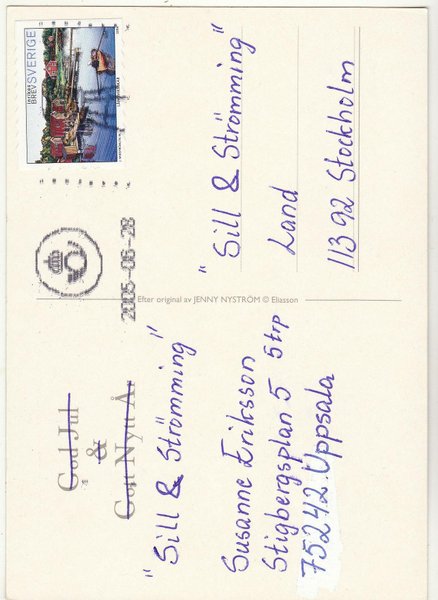 God Jul
&
Gott Nytt År
"Sill & Strömming"
Susanne Eriksson
Stigbergsplan 5 5trp
75242 Uppsala
Efter original av JENNY NYSTRÖM © Eliasson
2005-06-28
BREV SVERIGE
"Sill & Strömming"
Land
113 92 Stockholm